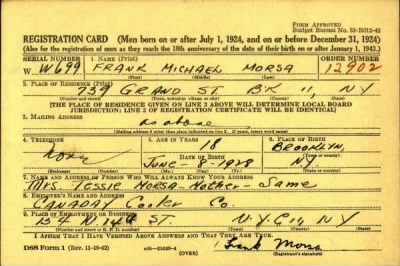 FORM APPROVED
Budget Bureau No. 33-R012-42
REGISTRATION CARD (Men born on or after July 1, 1924, and on or before December 31, 1924)
(Also for the registration of men as they reach the 18th anniversary of the date of their birth on or after January 1, 1943.)
SERIAL NUMBER 1. NAME (Print) ORDER NUMBER
W W699 FRANK MICHAEL MORSA 12902
2. PLACE OF RESIDENCE (Print)
739 GRAND ST BK 11, NY
(Number and street) (Town, township, village, or city) (County) (State)
[THE PLACE OF RESIDENCE GIVEN ON LINE 2 ABOVE WILL DETERMINE LOCAL BOARD
JURISDICTION; LINE 2 OF REGISTRATION CERTIFICATE WILL BE IDENTICAL]
3. MAILING ADDRESS
as above
[Mailing address if other than place indicated on line 2. If same, insert word same]
4. TELEPHONE 5. AGE IN YEARS 6. PLACE OF BIRTH
none 18 BROOKLYN,
DATE OF BIRTH
JUNE-8-1928 NY
7. NAME AND ADDRESS OF PERSON WHO WILL ALWAYS KNOW YOUR ADDRESS
Mrs. Tessie Morsa-Mother-Same
8. EMPLOYER'S NAME AND ADDRESS
CANADAY Cooler Co.
9. PLACE OF EMPLOYMENT OR BUSINESS
134 W. 14th ST. N.Y. City NY
I AFFIRM THAT I HAVE VERIFIED ABOVE ANSWERS AND THAT THEY ARE TRUE.
DSS Form 1 (Rev. 11-19-42) (OVER) Frank Morsa
(Registrant's signature)